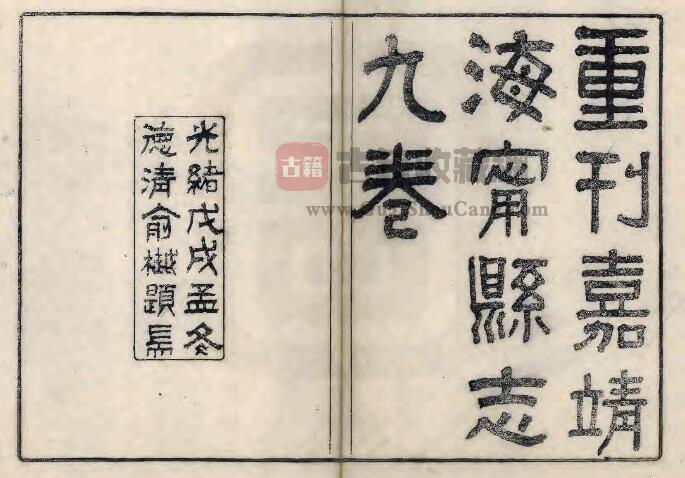 重刊嘉靖
海甯縣志
九卷
光緒戊戌孟冬
德清俞樾題耑
古籍